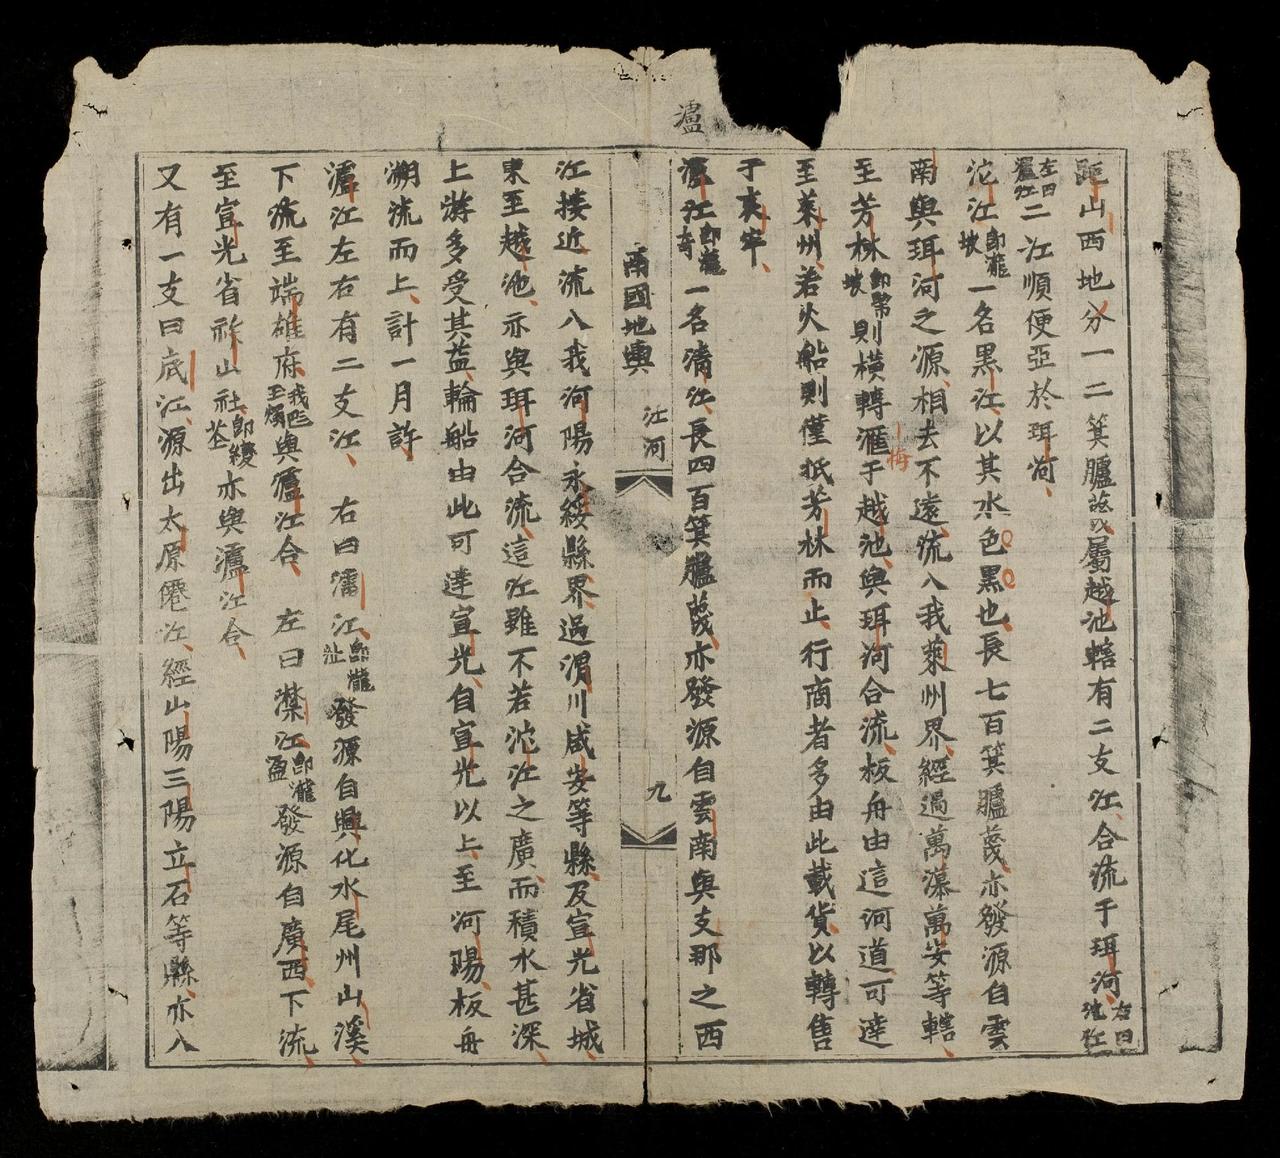 瀘
距山西地分一二箕臚蔑屬越池轄有二支江合流于珥河右曰沱江
左曰瀘江二江順便亞於珥河
沱江即瀧坡一名黑江以其水色黑也長七百箕臚蔑亦發源自雲
南與珥河之源相去不遠流入我萊州界經過萬藻萬安等轄
至芳林則橫轉滙于越池與珥河合流板舟由這河道可達
梅
至萊州若火船則僅抵芳林而止行商者多由此載貨以轉售
于哀牢
瀘江即瀧一名清江長四百箕臚蔑亦發源自雲南與支那之西
南國地輿 江河 九
江接近流入我河陽永綏縣界過渭川咸安等縣及宣光省城
東至越池亦與珥河合流這江雖不若沱江之廣而積水甚深
上游多受其益輪船由此可達宣光自宣光以上至河陽板舟
溯流而上計一月許
瀘江左右有二支江 右曰 江即瀧沚發源自興化水尾州山溪
下流至端雄府與瀘江合 左曰 江即瀧發源自廣西下流
至宣光省 山社即 亦與瀘江合
又有一支曰底江源出太原僊江經山陽三陽立石等縣亦入